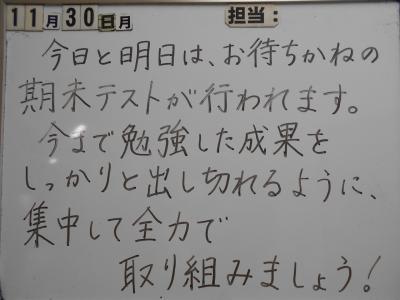 11月30日月 担当:
今日と明日は、お待ちかねの
期末テストが行われます。
今まで勉強した成果を
しっかりと出し切れるように、
集中して全力で
取り組みましょう!